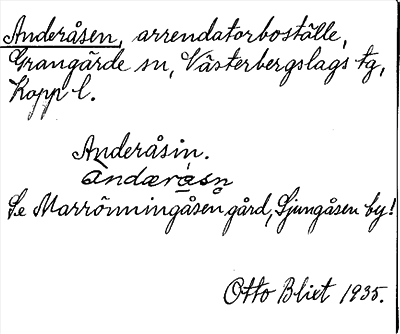 Anderåsen, arrendatorboställe,
Grangärde sn, Västerbergslags tg,
Kopp l.
Anderåsin.
andæråsn
Se Marrönningåsen gård, Ljungåsen by!
Otto Blixt 1935.